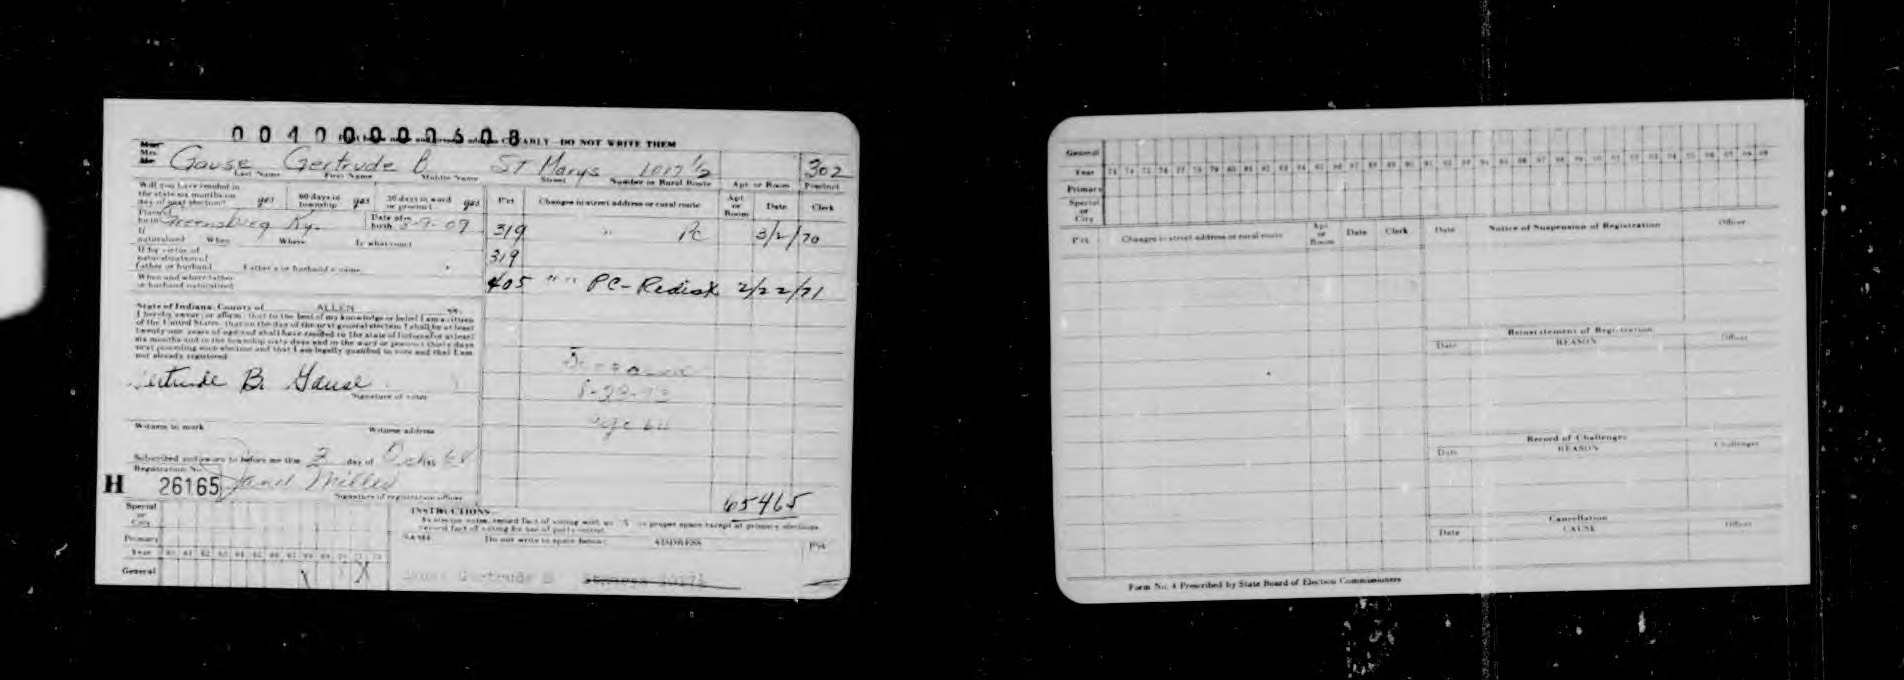 CLEARLY DO NOT WRITE THEM
Mrs. Gause Gertrude B. St Marys 1017 1/2 302
Last Name First Name Middle Name Street Number or Rural Route Apt or Room Precinct
Will you have resided in the state six months on day of next election? yes 60 days in township yes 30 days in ward or precinct yes
Place of birth Greensburg Ky. Date of birth 5-9-09
If naturalized When Where In what court
If by virtue of naturalization of father or husband Father's or husband's name
When and where father or husband naturalized
State of Indiana, County of ALLEN ss:
I hereby swear (or affirm) that to the best of my knowledge or belief I am a citizen
of the United States, that on the day of the next general election I shall be at least
twenty-one years of age and shall have resided in the state of Indiana for at least
six months and in the township sixty days and in the ward or precinct thirty days
next preceding such election and that I am legally qualified to vote and that I am
not already registered
Gertrude B. Gause
Signature of voter
Witness to mark Witness address
Subscribed and sworn to before me this 3 day of Oct 19
Registration No.
H 26165 Janet Miller
Signature of registration officer
Special or City
Primary
Year 60 61 62 63 64 65 66 67 68 69 70 71 72
General X X
Prct Changes in street address or rural route Apt or Room Date Clerk
319 " PC 3/2/70
319
405 " " PC-Redisk 2/22/71
65465
INSTRUCTIONS
NAME Do not write in space below ADDRESS Prct
Gause Gertrude B St Marys 1017½
General
Year 73 74 75 76 77 78 79 80 81 82 83 84 85 86 87 88 89 90 91 92 93 94 95 96 97 98 99
Primary
Special or City
Prct Changes in street address or rural route Apt or Room Date Clerk Date Notice of Suspension of Registration Officer
Reinstatement of Registration
Date REASON Officer
Record of Challenges
Date REASON Challenger
Cancellation
Date CAUSE Officer
Form No. 4 Prescribed by State Board of Election Commissioners